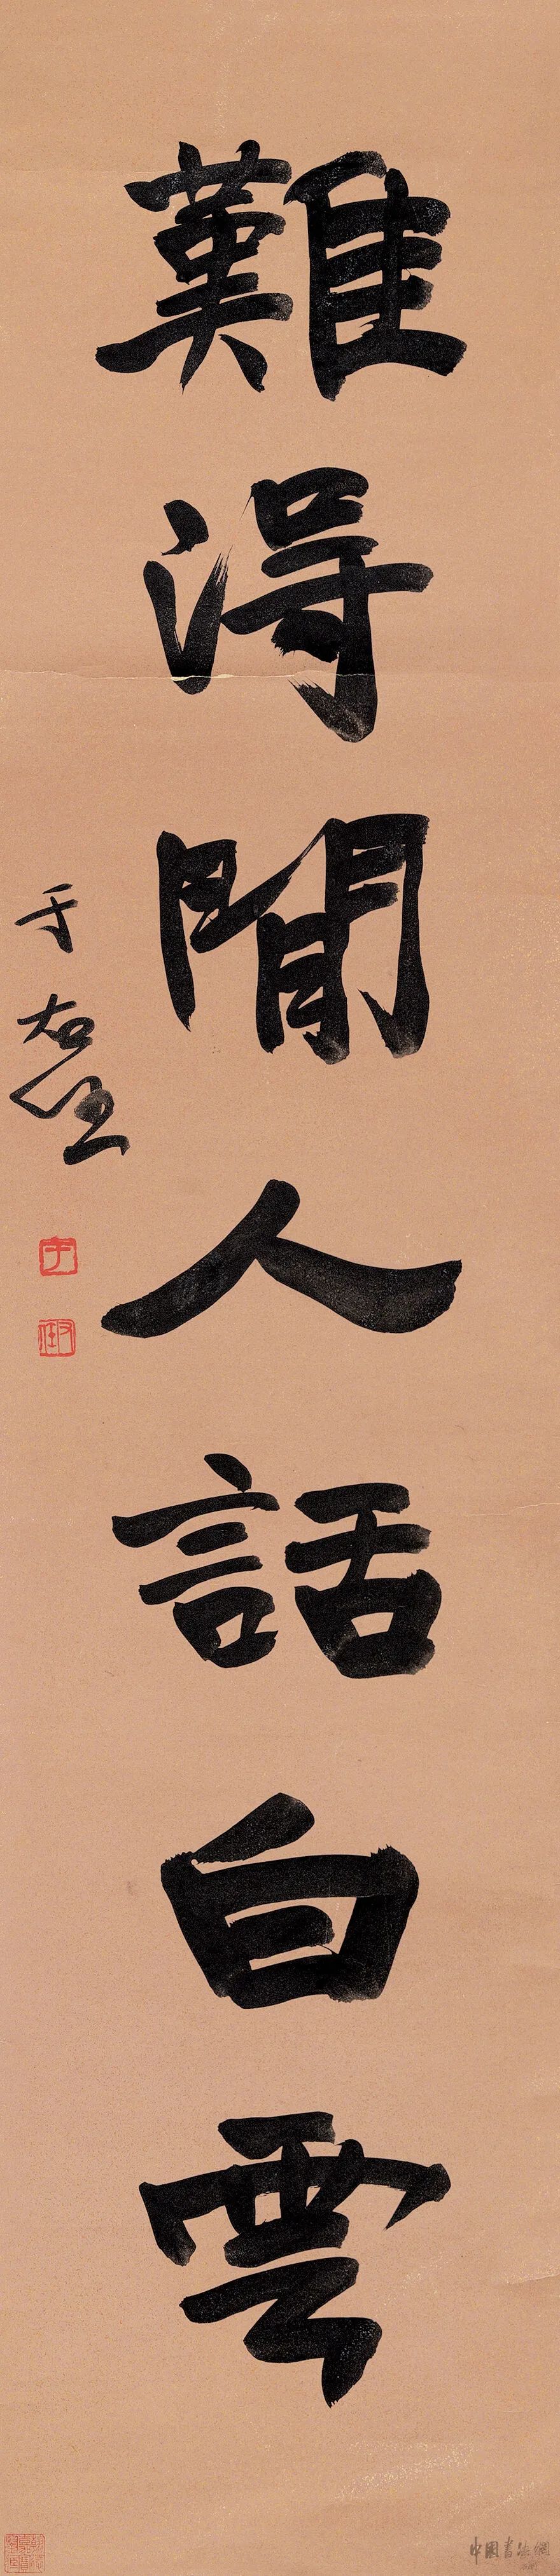 難得閒人話白雲
于右任
中國書法網